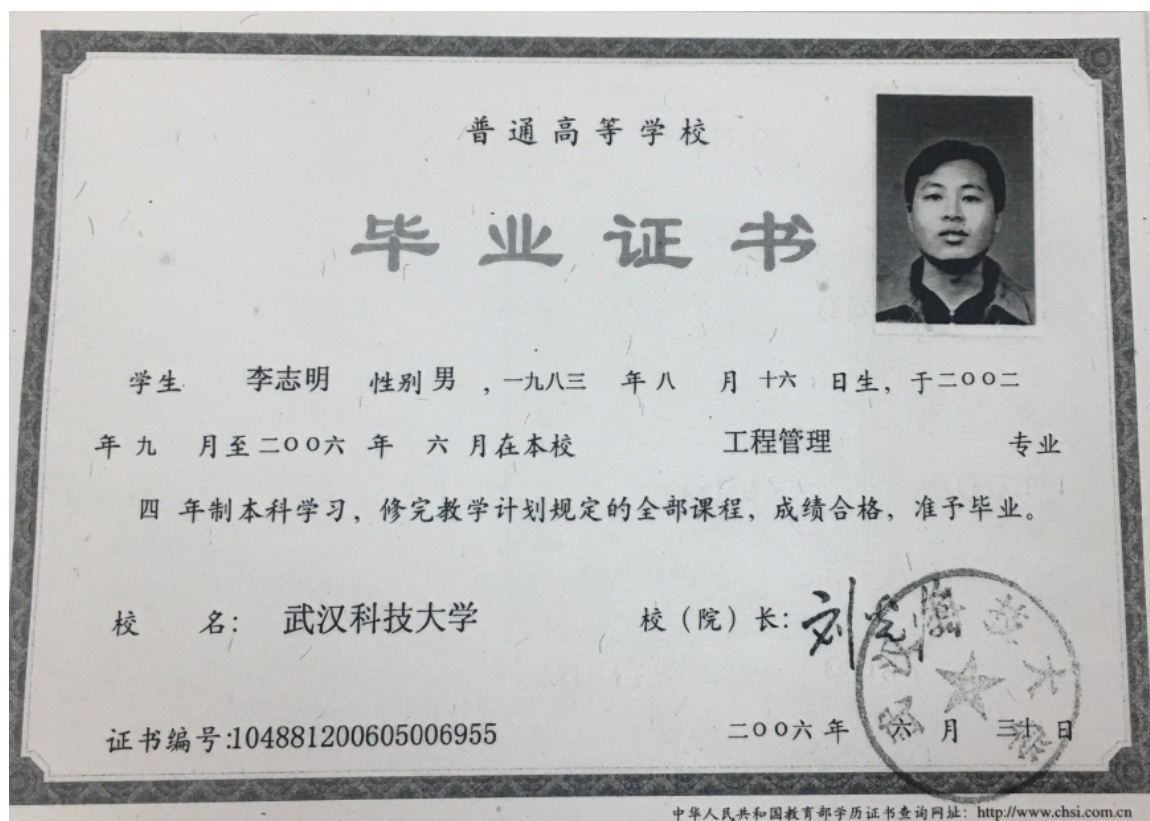 普通高等学校
毕业证书
学生 李志明 性别 男 ，一九八三 年 八 月 十六 日生，于二〇〇二
年 九 月至 二〇〇六 年 六 月在本校 工程管理 专业
四 年制本科学习，修完教学计划规定的全部课程，成绩合格，准予毕业。
校 名： 武汉科技大学 校（院）长：
武汉科技大学
证书编号:104881200605006955 二〇〇六 年 六 月 三十 日
中华人民共和国教育部学历证书查询网址：http://www.chsi.com.cn